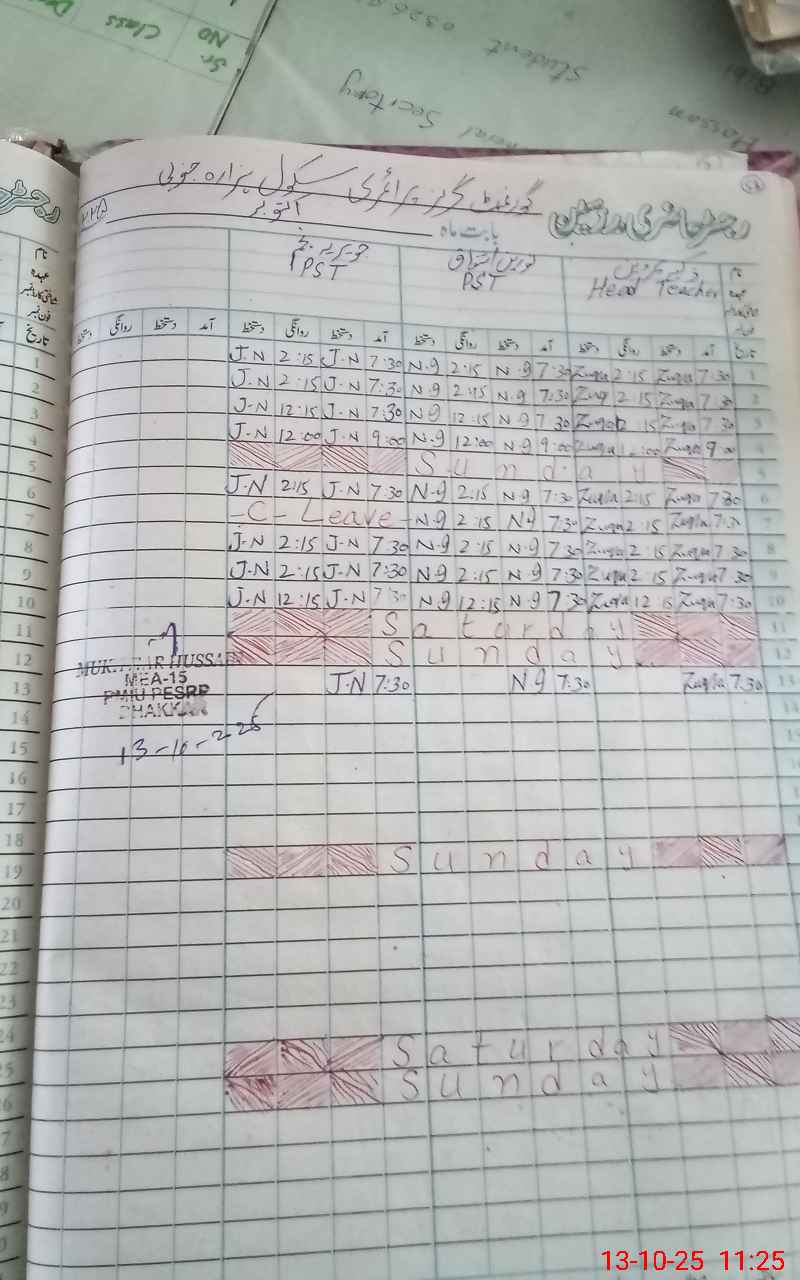 Sr NO
Class
Student
0326
General Secrtory
Hassan
Bibi
گورنمنٹ گرلز پرائمری سکول ہزارہ جنوبی
رجسٹر حاضری مدرسین
بابت ماہ اکتوبر
نام
عہدہ
Head Teacher
PST
PST
تاریخ آمد دستخط روانگی دستخط آمد دستخط روانگی دستخط آمد دستخط روانگی دستخط آمد دستخط روانگی دستخط
1 J.N 2:15 J.N 7:30 N.9 2:15 N.9 7:30 Zuqia 2:15 Zuqia 7:30 1
2 J.N 2:15 J.N 7:30 N9 2:15 N9 7:30 Zuqia 2:15 Zuqia 7:30 2
3 J-N 12:15 J-N 7:30 N9 12:15 N9 7:30 Zuqia 12:15 Zuqia 7:30 3
4 J-N 12:00 J.N 9:00 N-9 12:00 N9 9:00 Zuqia 12:00 Zuqia 9:00 4
5 Sunday 5
6 J-N 2:15 J.N 7:30 N-9 2:15 N-9 7:30 Zuqia 2:15 Zuqia 7:30 6
7 -C- Leave - N9 2:15 N9 7:30 Zuqia 2:15 Zuqia 7:30 7
8 J-N 2:15 J-N 7:30 N-9 2:15 N-9 7:30 Zuqia 2:15 Zuqia 7:30 8
9 J-N 2:15 J-N 7:30 N9 2:15 N-9 7:30 Zuqia 2:15 Zuqia 7:30 9
10 J-N 12:15 J-N 7:30 N9 12:15 N-9 7:30 Zuqia 12:15 Zuqia 7:30 10
11 Saturday 11
12 Sunday 12
13 J-N 7:30 N9 7:30 Zuqia 7:30 13
MUKHTAR HUSSAIN
MEA-15
PMIU PESRP
BHAKKAR
13-10-2025
14
15
16
17
18
19 Sunday
20
21
22
23
24
25 Saturday
26 Sunday
13-10-25 11:25